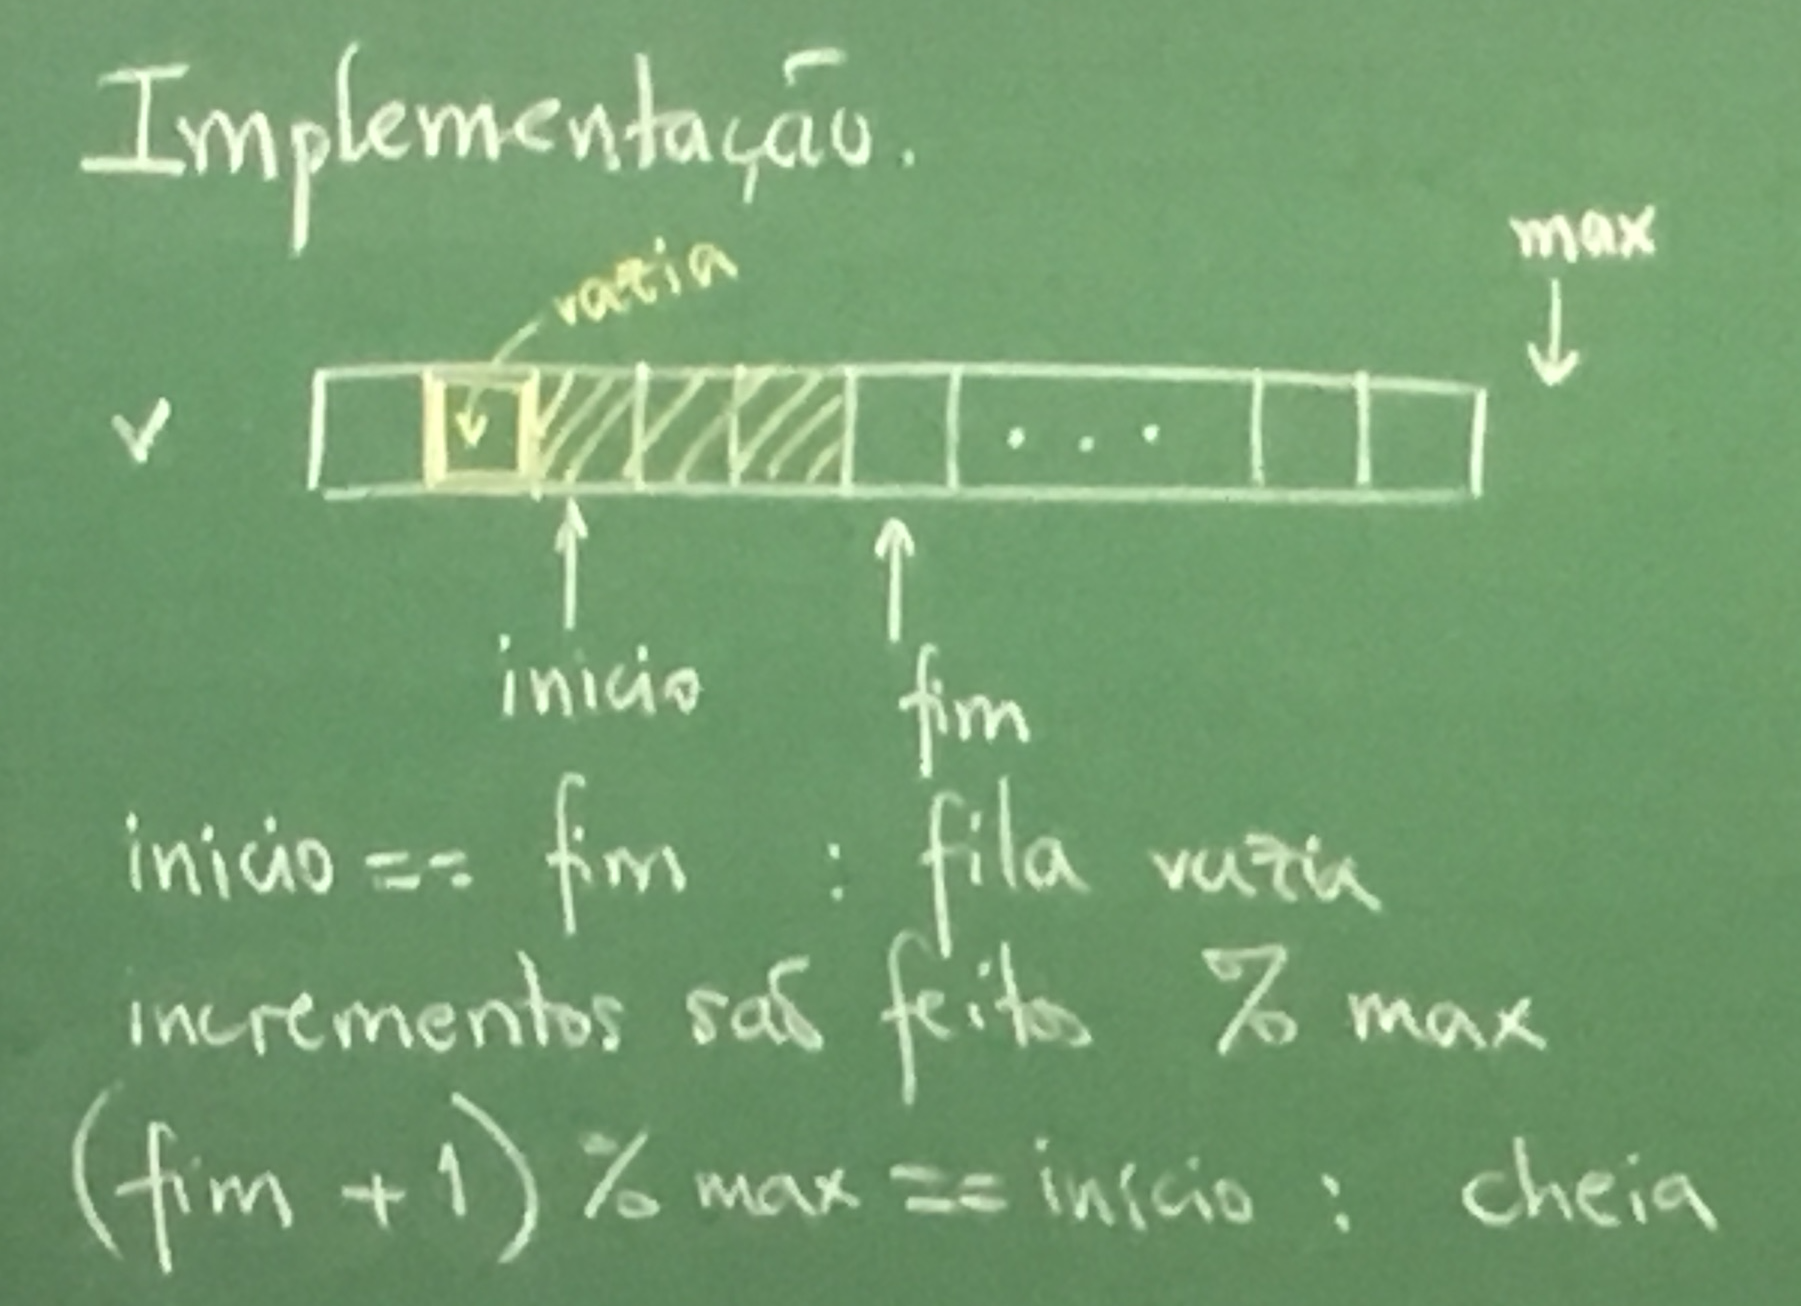 Implementação.
vazia
max
v
. . .
inicio
fim
inicio == fim : fila vazia
incrementos são feitos % max
(fim + 1) % max == início : cheia